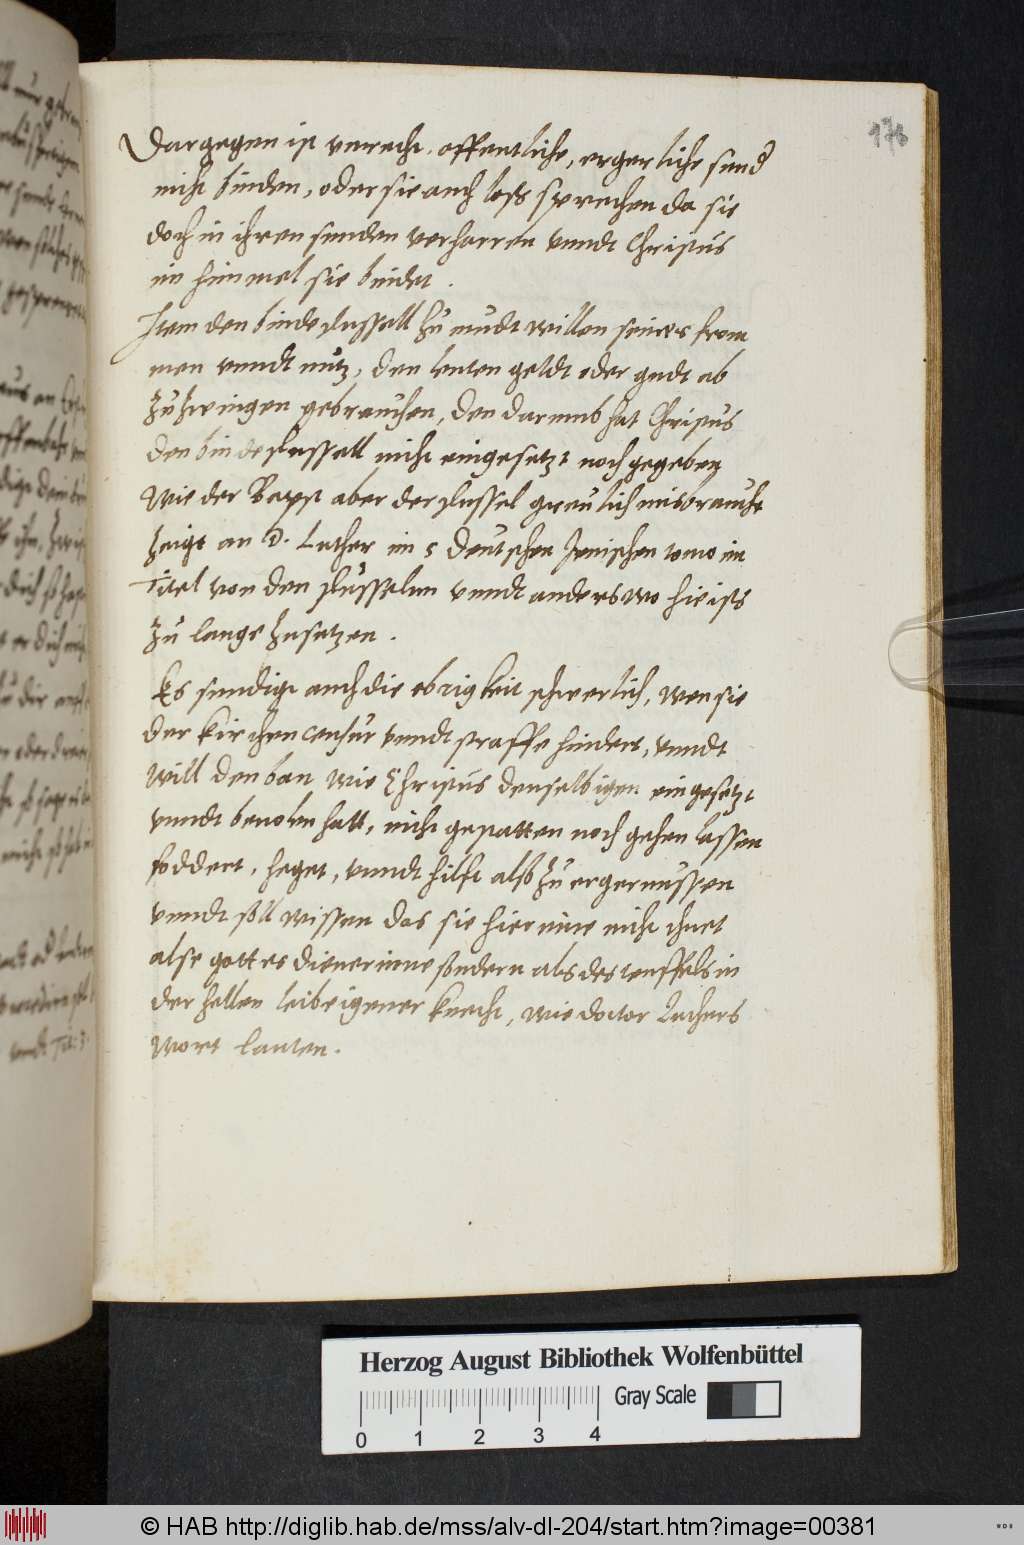 178
Dargegen ist vnrecht. offentliche, ergerliche sund
nicht binden, oder sie auch loß sprechen da sie
doch in ihren sunden verharren vnndt Christus
im himmel sie bindet.
Item den bindeslussell zu mudt willen seines from
men vnndt nutz, den leuten geldt oder gudt ab
zu zwingen gebrauchen, den darumb hat Christus
den bindeslussell nicht eingesetzt noch gegeben
Wie der Bapst aber der slussel greulich misbraucht
zeigt an D. Luther im 5 deutschen Jenischen tomo im
Titel von den slusseln vnndt anderswo hie ists
zu lange zusetzen.
Es sundigt auch die obrigkeit schwerlich, wen sie
der kirchen censur vnndt straffe hindert, vnndt
will den ban wie Christus denselbigen eingesetzt
vnndt beuolen hatt, nicht gestatten noch gehen lassen
foddert, heget, vnndt hilft also zu ergernussen
vnndt soll wissen das sie hierinne nicht thuet
alse gottes dienerinne sondern als des teuffels in
der hellen leibeigener knecht, wie doctor Luthers
wort lauten.
Herzog August Bibliothek Wolfenbüttel
Gray Scale
0 1 2 3 4
© HAB http://diglib.hab.de/mss/alv-dl-204/start.htm?image=00381